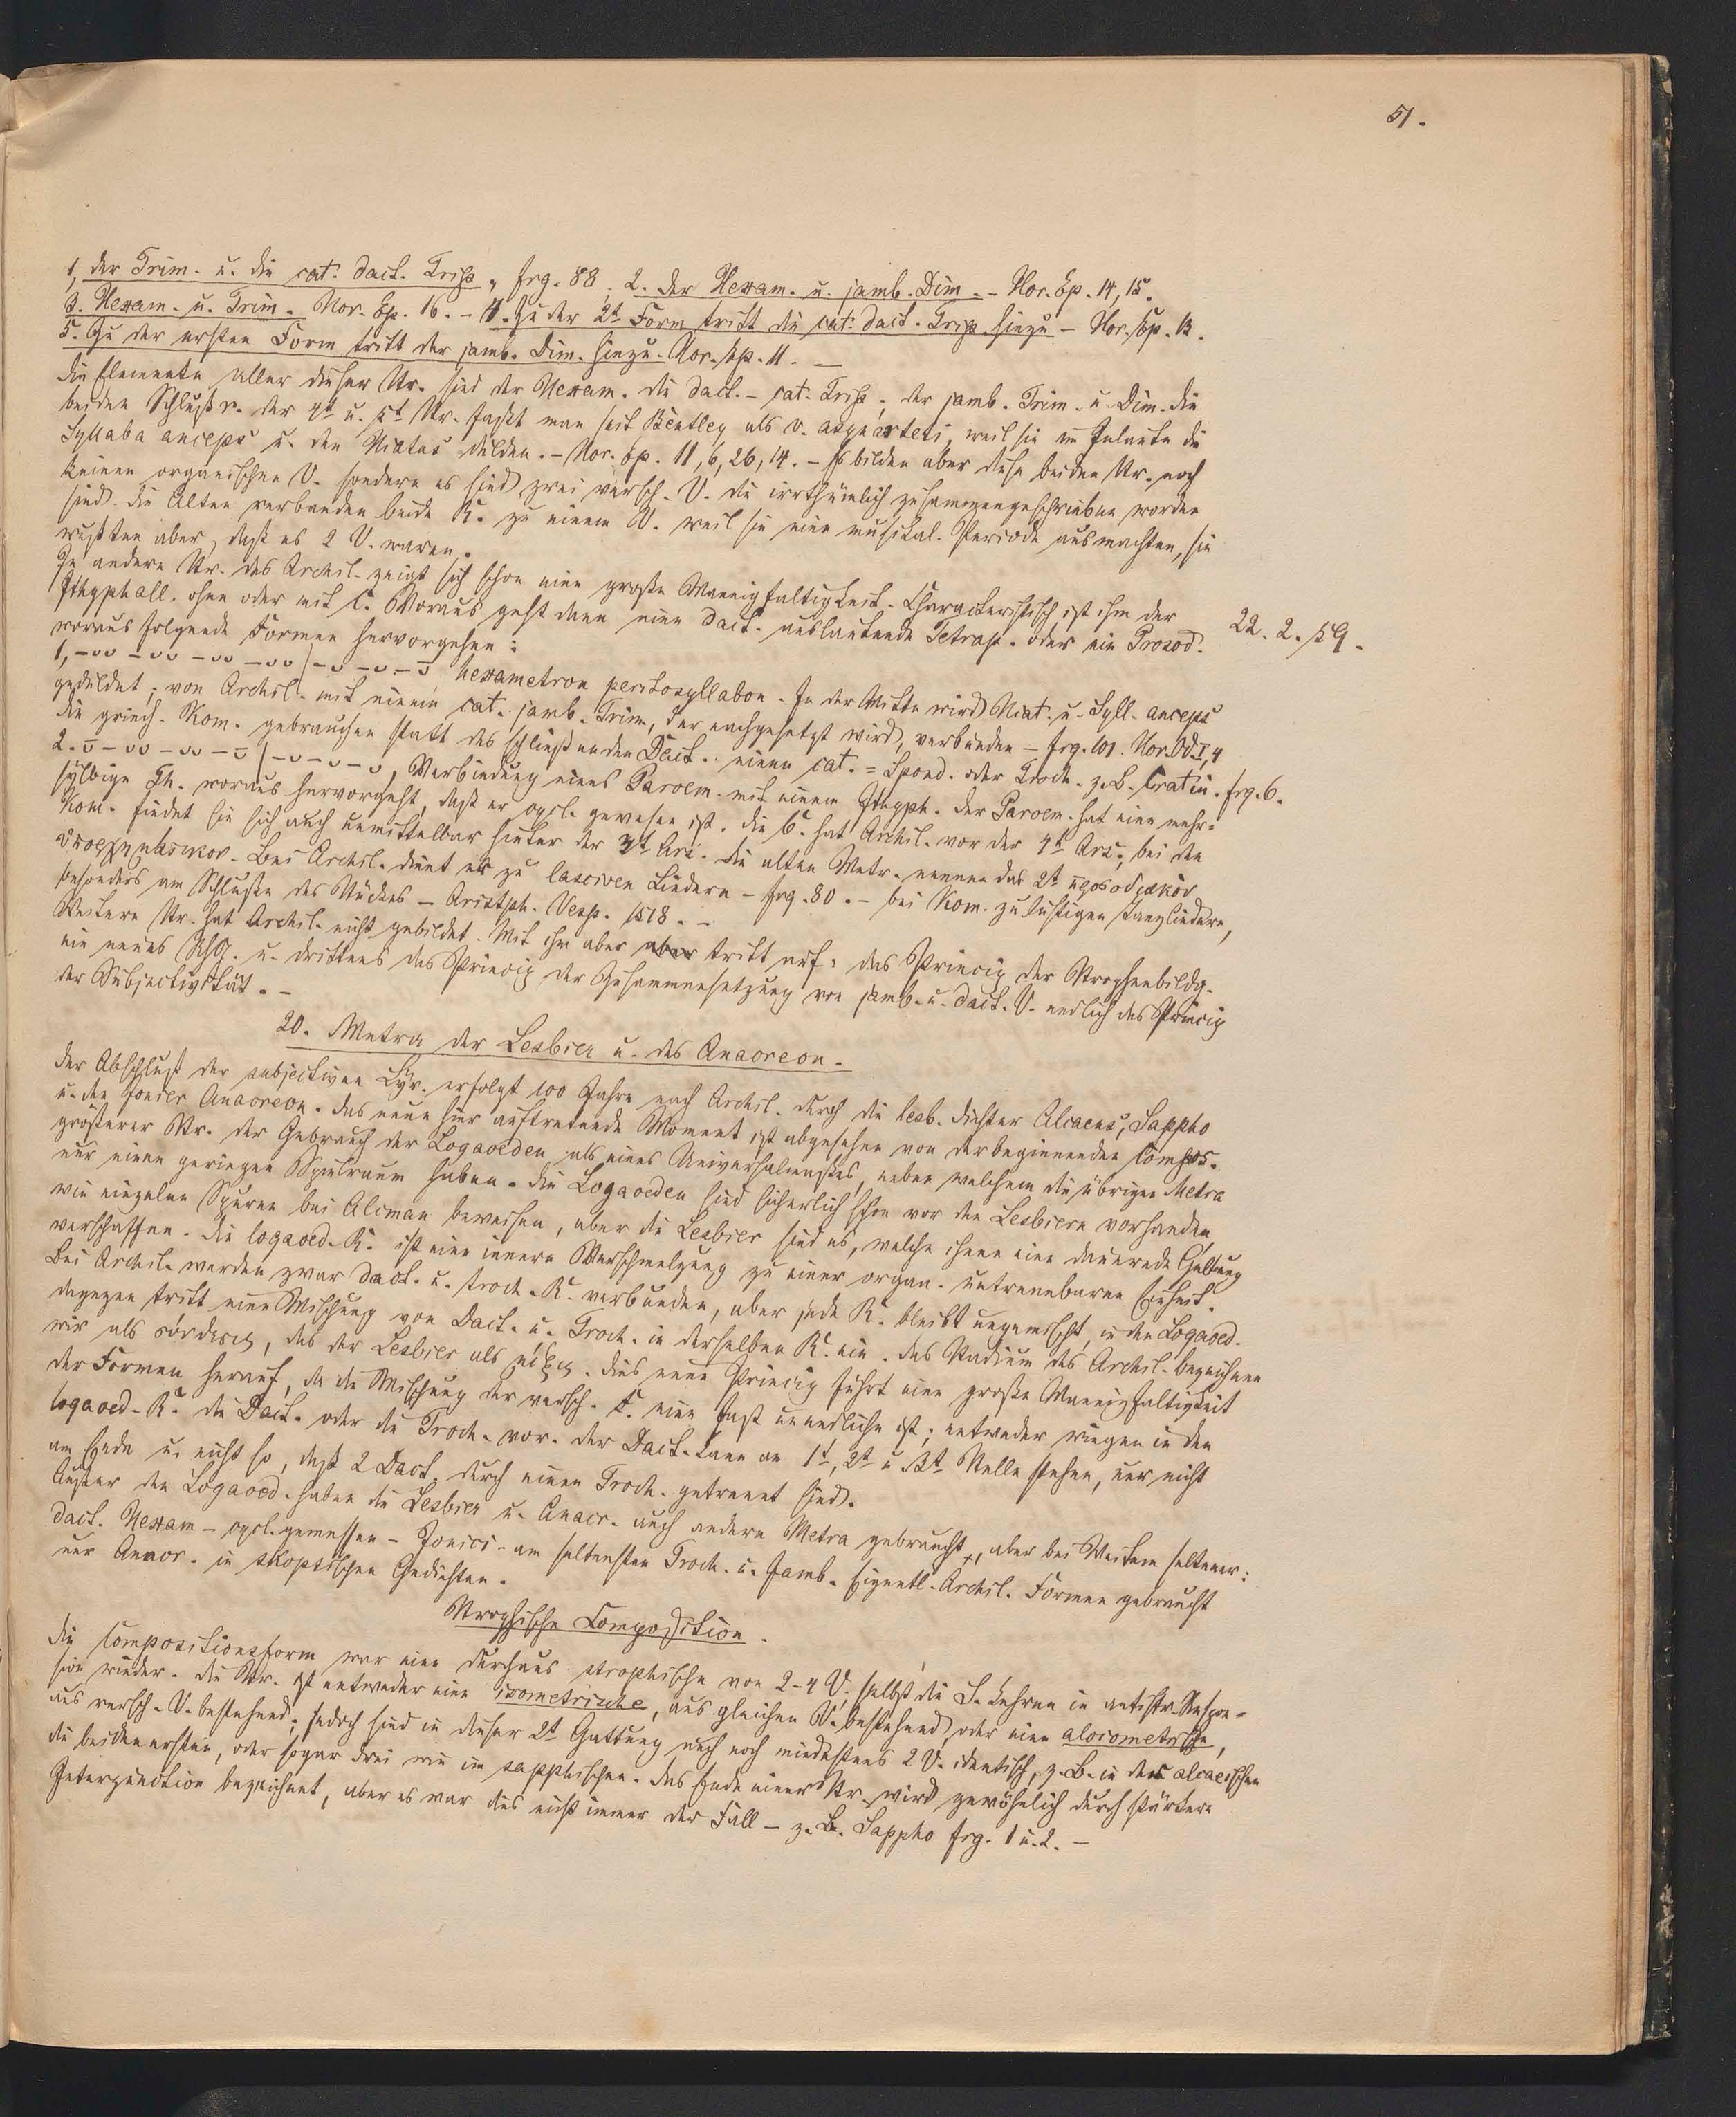 51.
1, der Trim. u. die cat. dact. Trip., frg. 88. 2. der Hexam. u. jamb. Dim. - Hor. Ep. 14, 15.
3. Hexam. u. Trim. Hor. Ep. 16. - 4. Zu der 2t Form tritt die cat. dact. Trip. hinzu - Hor. Ep. 13.
5. Zu der ersten Form tritt der jamb. Dim. hinzu. Hor. Ep. 11. -
Die Elemente aller dieser Str. sind der Hexam. die dact. - cat. Trip., der jamb. Trim. u. Dim. Die
beiden Schlußr. der 4t u. 5t Str. faßt man seit Bentley als v. asynarteti, weil sie im Inlaute die
Syllaba anceps u. den Hiatus dulden. - Hor. Ep. 11, 6, 26, 14. - Es bilden aber diese beiden Str. noch
keinen organischen V. sondern es sind zwei versch. V. die irrthümlich zusammengeschrieben worden
sind. Die Alten verbanden beide R. zu einem V. weil sie eine musikal. Periode ausmachten, sie
wußten aber, daß es 2 V. waren.
In andern Str. des Archil. zeigt sich schon eine große Mannigfaltigkeit. Characteristisch ist ihm der
Ithyphall. ohne oder mit C. Voraus geht dann eine dact. auslautende Tetrap. oder ein Prosod.
22. 2. 59.
woraus folgende Formen hervorgehen:
1, -∪∪ -∪∪ -∪∪ -∪∪ | -∪ -∪ -∪ hexametron perittosyllabon. In der Mitte wird Hiat. u. Syll. anceps
geduldet; von Archil. mit einem cat. jamb. Trim, der nachgesetzt wird, verbunden - frg. 101. Hor. Od I, 4
Die griech. Kom. gebrauchen statt des schließenden Dact. einen cat. = Spond. oder Troch. z. B. Cratin. frg. 6.
2. ∪ - ∪∪ - ∪∪ - ∪ | -∪ -∪ -∪, Verbindung eines Paroem. mit einem Ithyph. Der Paroem. hat eine mehr=
sylbige Th. woraus hervorgeht, daß er cycl. gewesen ist. Die C. hat Archil. vor der 4t Ars., bei den
Kom. findet sie sich auch unmittelbar hinter der 3t Ars. Die alten Metr. nennen das 2t προσοδιακὸν
Bei Archil. dient es zu lasciven Liedern - frg. 80. - bei Kom. zu lustigen Tanzliedern,
besonders am Schlusse des Stückes - Aristph. Vesp. 1518. -
Weitere Str. hat Archil. nicht gebildet. Mit ihm aber tritt auf: das Princip der Strophenbildg.
ein neues u. drittens das Princip der Zusammensetzung von jamb. u. dact. V. endlich das Princip
der Subjectivität. -
20. Metra der Lesbier u. des Anacreon.
Der Abschluß der subjectiven Lyr. erfolgt 100 Jahre nach Archil. durch die lesb. Dichter Alcaeus, Sappho
u. den Jonier Anacreon. Das neue hier auftretende Moment ist abgesehen von der beginnenden Compos.
größerer Str. der Gebrauch der Logaoeden als eines Universalmaßes, neben welchem die übrigen Metra
nur einen geringen Spielraum haben. Die Logaoeden sind sicherlich schon vor den Lesbiern vorhanden,
wie einzelne Spuren bei Alcman beweisen, aber die Lesbier sind es, welche ihnen eine dauernde Geltung
verschaffen. Die logaoed. R. ist eine innere Verschmelzung zu einer organ. untrennbaren Einheit.
Bei Archil. werden zwar dact. u. troch. R. verbunden, aber jede R. bleibt ungemischt, in den Logaoed.
dagegen tritt eine Mischung von Dact. u. Troch. in derselben R. ein. Das Stadium des Archil. bezeichnen
wir als σύνθεσις, das der Lesbier als μῖξις. Dies neue Princip führt eine große Mannigfaltigkeit
der Formen herauf, da die Mischung der versch. F. eine fast unendliche ist; entweder wiegen in den
logaoed. R. die Dact. oder die Troch. vor. Der Dact. kann an 1t, 2t u. 3t Stelle stehen, nur nicht
am Ende u. nicht so, daß 2 Dact. durch einen Troch. getrennt sind.
Außer den Logaoed. haben die Lesbier u. Anacr. auch andere Metra gebraucht, aber bei Weitem seltener:
dact. Hexam - cycl. gemessen - Jonici - am seltensten Troch. u. Jamb. Eigentl. Archil. Formen gebraucht
nur Anacr. in skoptischen Gedichten.
Strophische Composition.
Die Compositionsform war eine durchaus strophische von 2-4 V, selbst die S. kehren in antistr. Respon=
sion wieder. Die Str. ist entweder eine isometrische, aus gleichen V. bestehend, oder eine aloiometrische,
aus versch. V. bestehend; jedoch sind in dieser 2t Gattung auch noch mindestens 2 V. identisch, z. B. in der alcaeischen
die beiden ersten, oder sogar drei wie im sapphischen. Das Ende einer Str. wird gewöhnlich durch stärkere
Interpunction bezeichnet, aber es war dies nicht immer der Fall - z. B. Sappho frg. 1 u. 2. -